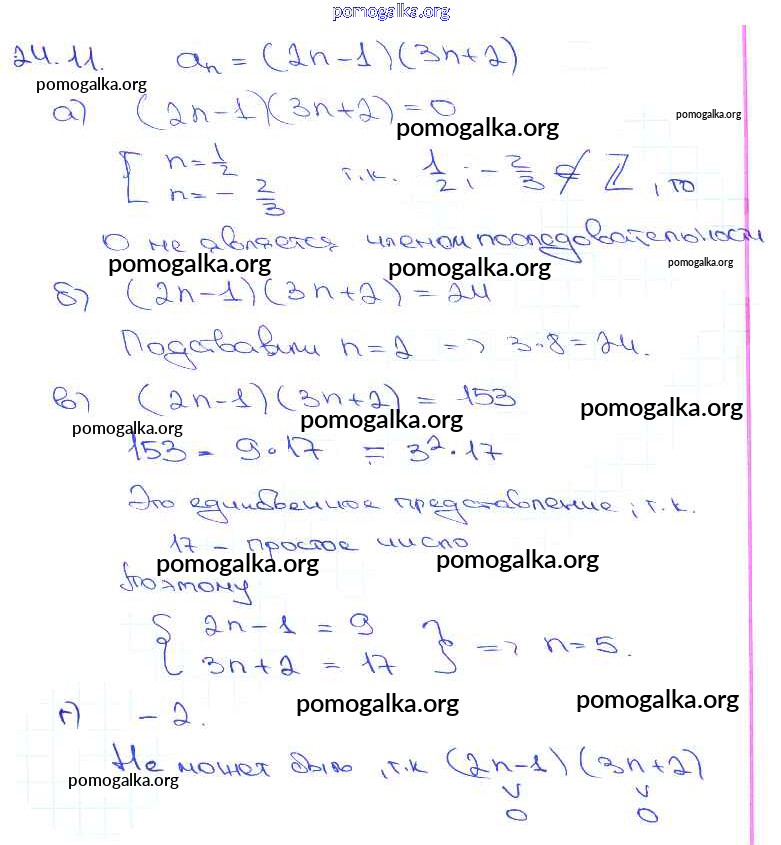 pomogalka.org
24.11. aₙ = (2n-1)(3n+2)
pomogalka.org
а) (2n-1)(3n+2) = 0
pomogalka.org
pomogalka.org
[ n = 1/2
n = - 2/3
т.к. 1/2 ; - 2/3 ∉ ℤ, то
0 не является членом последовательности
pomogalka.org
pomogalka.org
pomogalka.org
б) (2n-1)(3n+2) = 24
Подставим n = 2 => 3·8 = 24.
в) (2n-1)(3n+2) = 153
pomogalka.org
pomogalka.org
pomogalka.org
153 = 9·17 = 3²·17
Это единственное представление, т.к.
17 - простое число
pomogalka.org
pomogalka.org
Поэтому
{ 2n-1 = 9
3n+2 = 17 } => n = 5.
г) - 2.
pomogalka.org
pomogalka.org
Не может быть, т.к (2n-1) (3n+2)
pomogalka.org
∨ ∨
0 0